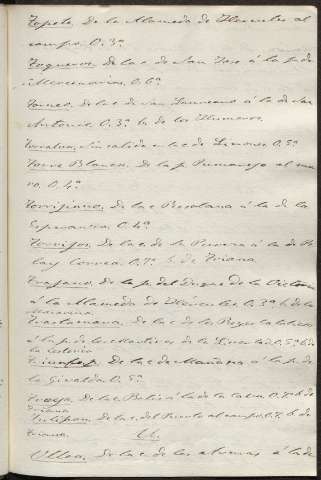 Topete, De la Alameda de Hercules al
campo. O. 3º
Toqueros. De la c. de San Jose á la p. de
Mercenarias. O. 6º
Torneo, de la c. de San Laureano á la de San
Antonio. O. 3º b. de los Humeros.
Torrejon, Sin salida en la c. de O. 5º
Torre Blanca. De la p. Pumarejo al mu-
ro. O. 4º
Torrigiano, de la c. Resolana á la de la
Esperanza. O. 4º
Torrijos, De la c. de la Pureza á la de Pe-
lay Correa. O. 7º b. de Triana.
Trajano, de la p. del Duque de la Victoria
á la Alameda de Hercules O. 3º b. de la
Trastamara, De la c. de los Reyes Catolicos
á la p. de los Martires de la O. 5º b. de
la Cesteria
Triunfo, p. De la c. de Mañara á la p. de
la Giralda O. 5º
Troya, De la c. Betis á la de la Cava O. 7º b. de
Triana
Tulipan, De la c. del Puerto al campo O. 7º b. de
Triana.
U.
Ulloa, De la c. de las á la de